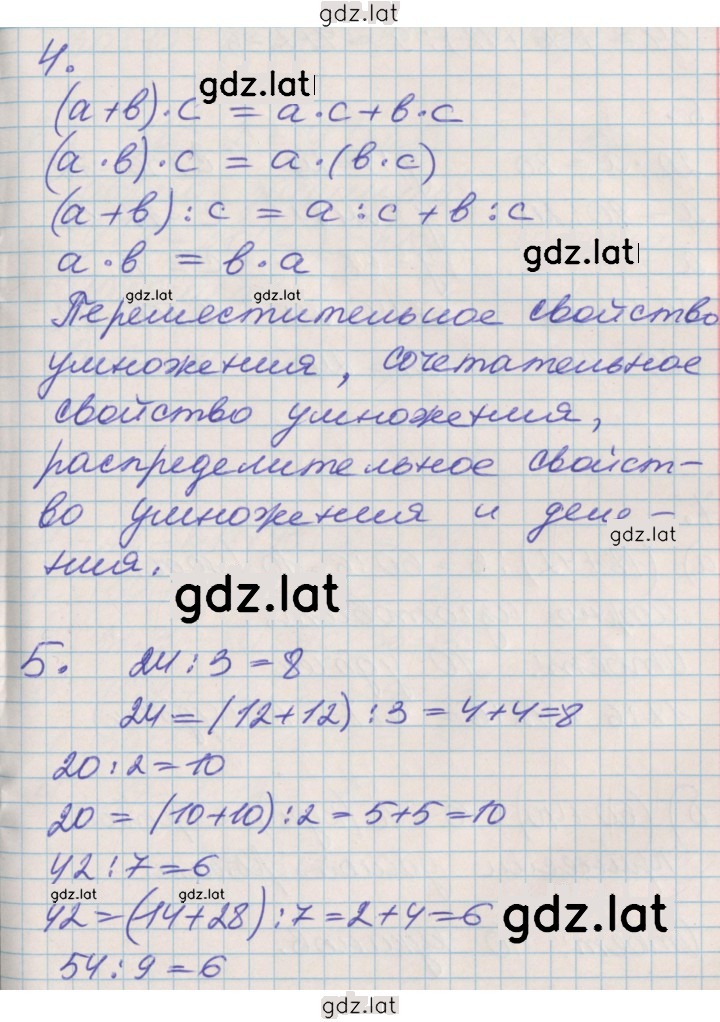 gdz.lat
4.
gdz.lat
(а+в)·с = а·с+в·с
(а·в)·с = а·(в·с)
(а+в):с = а:с+в:с
gdz.lat
а·в = в·а
gdz.lat gdz.lat
Переместительное свойство
умножения, сочетательное
свойство умножения,
распределительное свойст-
во умножения и деле-
gdz.lat
ния.
gdz.lat
5. 24:3=8
24=(12+12):3=4+4=8
20:2=10
20=(10+10):2=5+5=10
42:7=6
gdz.lat gdz.lat
42=(14+28):7=2+4=6
gdz.lat
54:9=6
gdz.lat